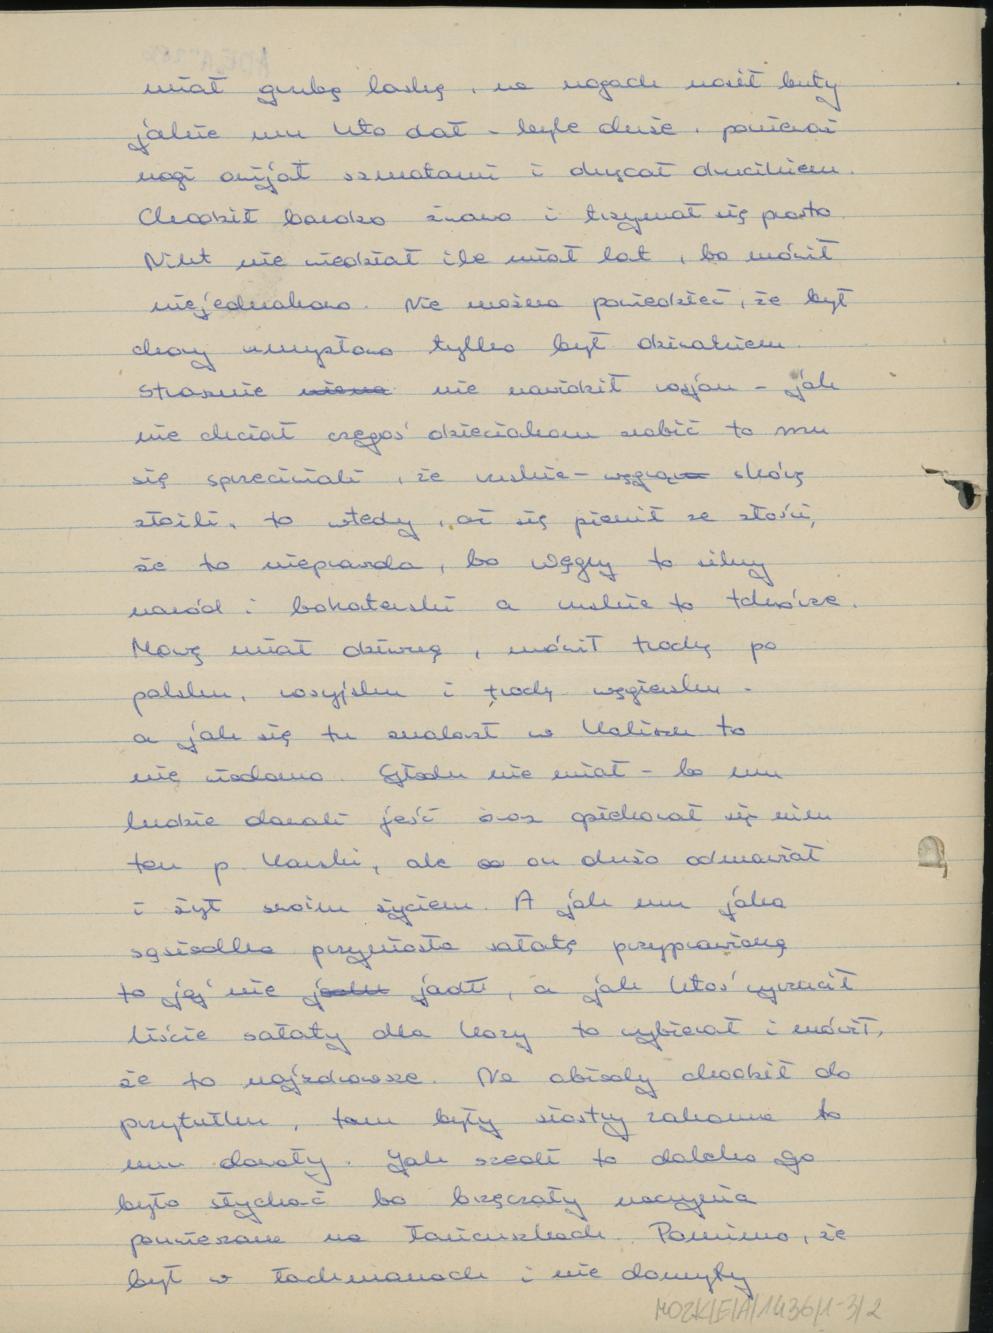 miał grubą laskę, na nogach nosił buty
jakie mu kto dał – byle duże, ponieważ
nogi owijał szmatami i okręcał drucikiem.
Chodził bardzo żwawo i trzymał się prosto.
Nikt nie wiedział ile miał lat, bo mówił
niejednakowo. Nie można powiedzieć, że był
chory umysłowo tylko był dziwakiem.
Strasznie nie nawidził rosjan – jak
nie chciał czegoś dzieciakom zrobić to mu
się sprzeciwiali, że ruskie – skórę
złoili, to wtedy, aż się pienił ze złości,
że to nieprawda, bo Węgry to silny
naród i bohaterski a ruskie to tchórze.
Mowę miał dziwną, mówił trochę po
polsku, rosyjsku i trochę węgiersku –
a jak się tu znalazł w Kaliszu to
nie wiadomo. Głodu nie miał – bo mu
ludzie dawali jeść oraz opiekował się nim
ten p. Karski, ale on dużo odmawiał
i żył swoim życiem. A jak mu jaka
sąsiadka przyniosła sałatę przyprawioną
to jej nie jadł, a jak ktoś wyrzucił
liście sałaty dla kozy to wybierał i mówił,
że to najzdrowsze. Na obiady chodził do
przytułku, tam były siostry zakonne to
mu dawały. Jak szedł to daleko go
było słychać bo brzęczały naczynia
powieszane na łańcuszkach. Pomimo, że
był w łachmanach i nie domyty
MOZK/E/A/1436/1-3/2